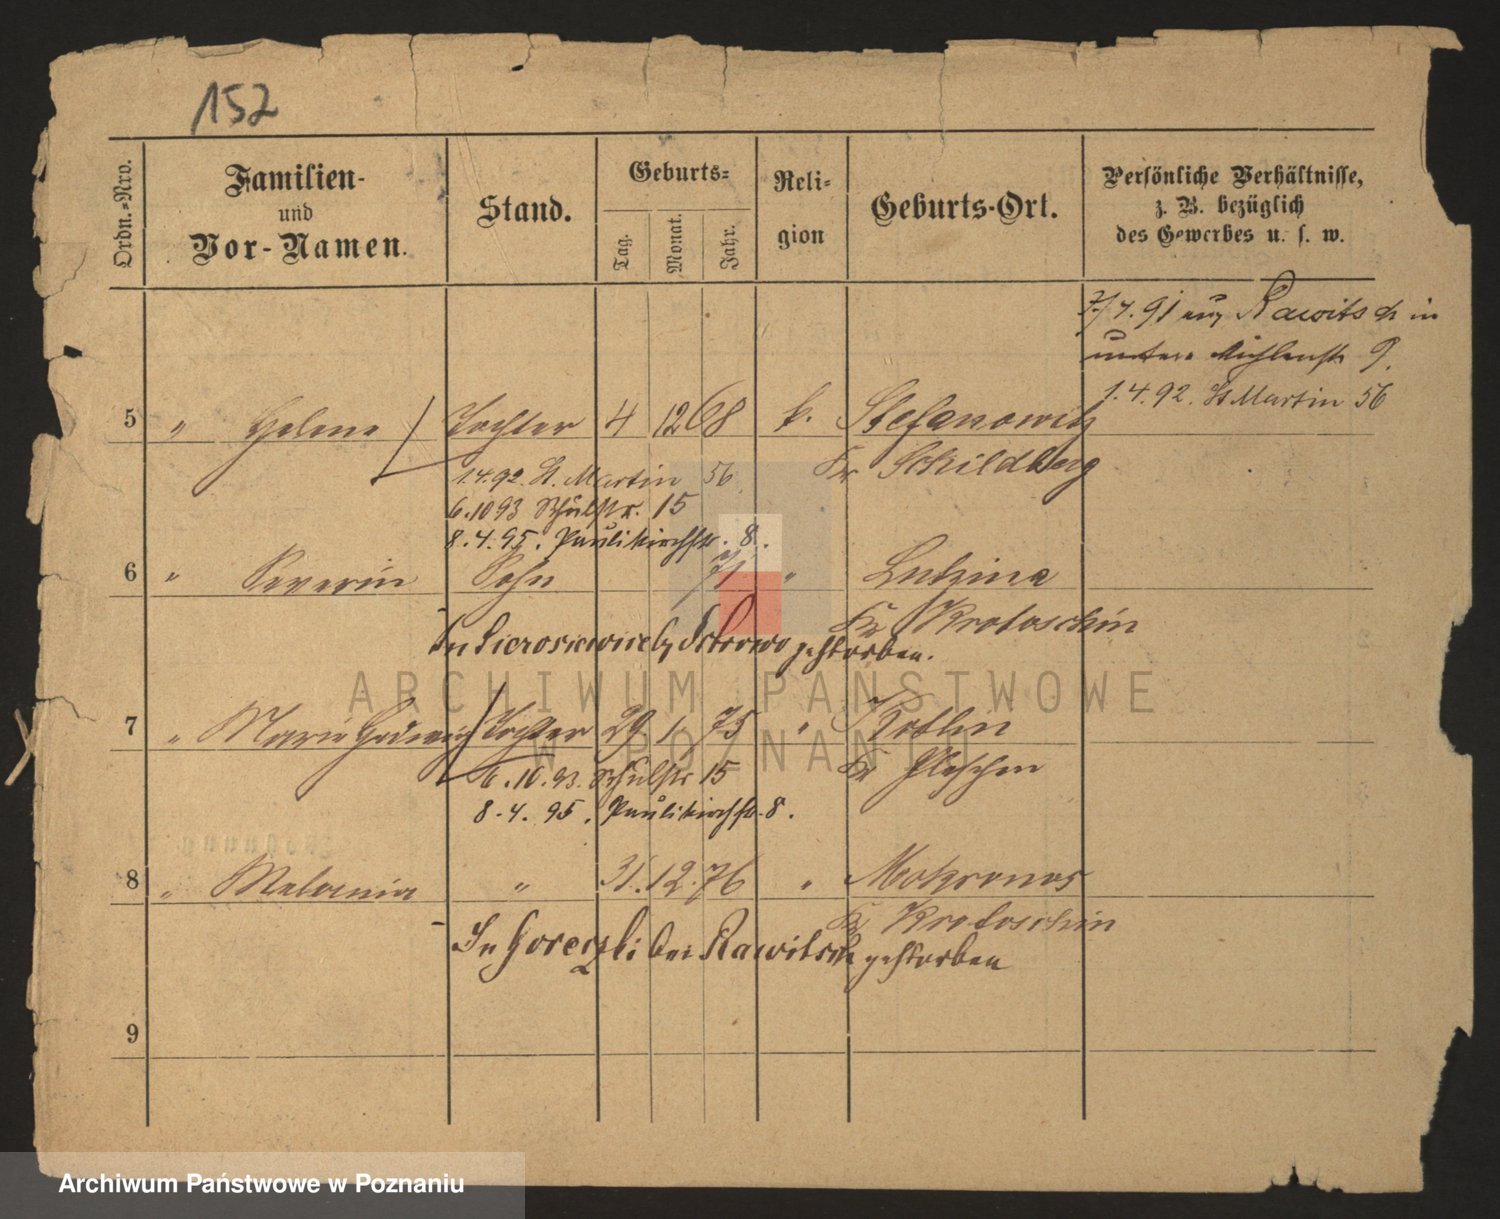 152
Ordn.-Nro.
Familien-
und
Vor-Namen.
Stand.
Geburts-
Tag.
Monat.
Jahr.
Reli-
gion
Geburts-Ort.
Persönliche Verhältnisse,
z. B. bezüglich
des Gewerbes u. s. w.
7/4. 91 aus Rawitsch in
untere Mühlenstr 9.
1.4.92. St Martin 56
5 " Helene Tochter 4 12 68 k. Stefanowitz
Kr Schildberg
1.4.92. St. Martin 56
6.10 93 Schulstr. 15
8.4.95. Paulikirchstr. 8.
6 " Severin Sohn 71 " Lutzine
Kr Krotoschin
In b/ Ostrowo gestorben.
7 " Marie Hedwig Tochter 29 1. 75 " Kotlin
Kr Pleschen
6.10.93. Schulstr 15
8.4.95. Paulikirchstr. 8.
8 " Melania " 31. 12. 76 " Mokronos
Kr Krotoschin
In bei Rawitsch gestorben
9
ARCHIWUM PAŃSTWOWE
W POZNANIU
Archiwum Państwowe w Poznaniu